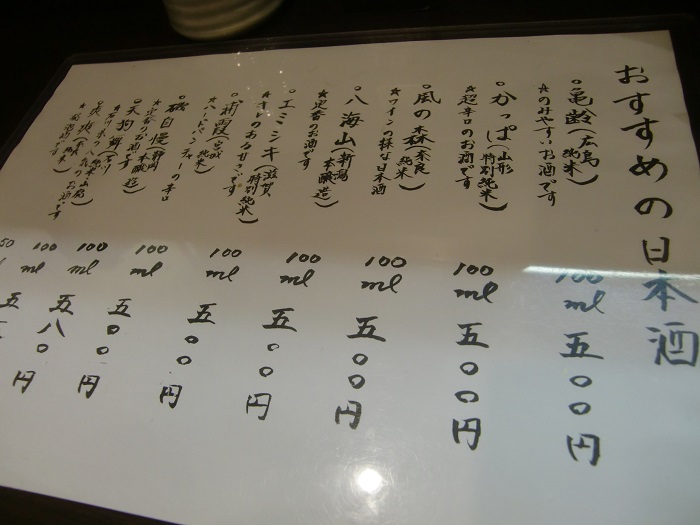 おすすめの日本酒
○亀齢(広島 純米)
☆のみやすいお酒です
100 ml 五〇〇円
○かっぱ(山形 特別純米)
☆超辛口のお酒です
100 ml 五〇〇円
○風の森(奈良 純米)
☆ワインの様な日本酒
100 ml 五〇〇円
○八海山(新潟 本醸造)
☆定番のお酒です
100 ml 五〇〇円
○エミシキ(滋賀 特別純米)
☆キレのある甘口です
100 ml 五〇〇円
(宮城 純米)
100 ml 五〇〇円
○磯自慢(静岡 本醸造)
の辛口
100 ml 五〇〇円
○天狗舞(石川
のお酒です
100 ml 五八〇円
円